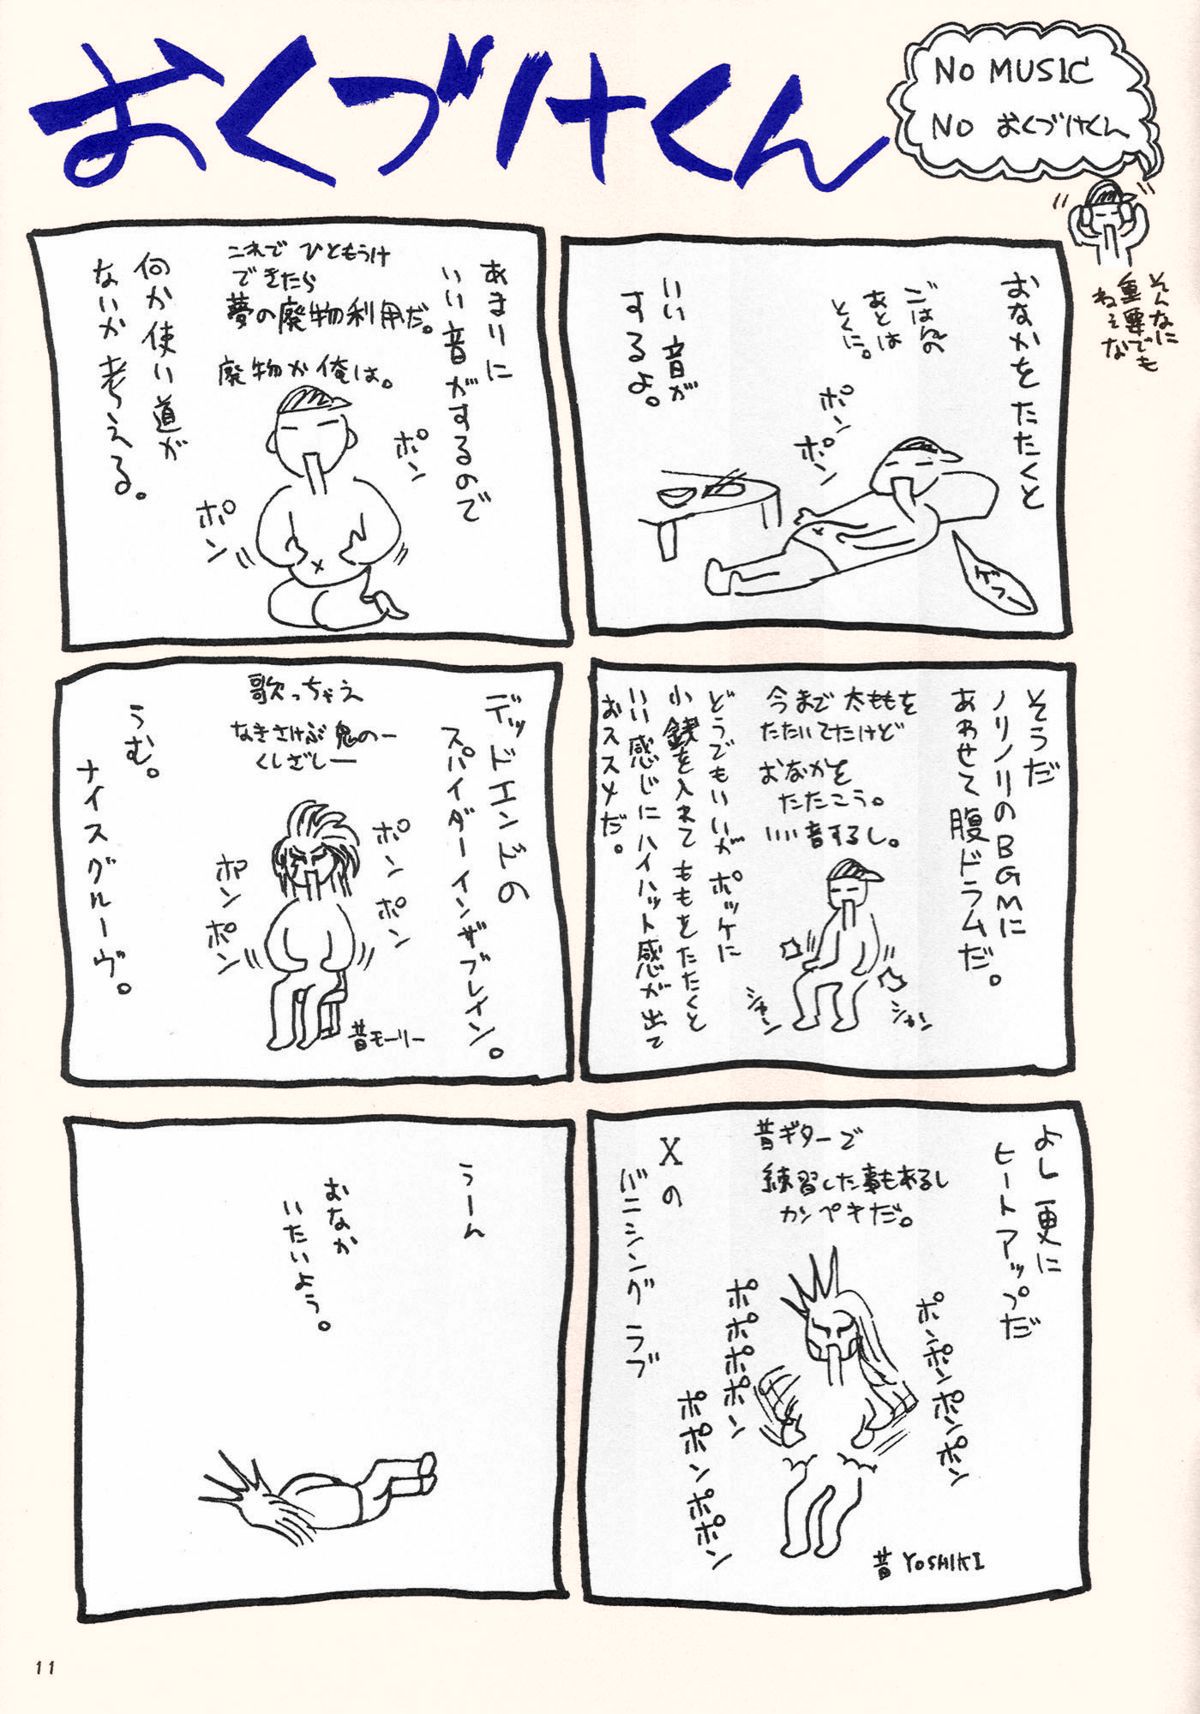 おくづけくん
NO MUSIC
NO おくづけくん
そんなに
重要でも
ねえな
おなかをたたくと
ごはんの
あとは
とくに。
いい音が
するよ。
ポン
ポン
ゲフー
あまりに
いい音がするので
これで ひともうけ
できたら
夢の廃物利用だ。
廃物か俺は。
何か使い道が
ないか考える。
ポン
ポン
そうだ
ノリノリのBGMに
あわせて腹ドラムだ。
今まで太ももを
たたいてたけど
おなかを
たたこう。
いい音するし。
どうでもいいがポッケに
小銭を入れてももをたたくと
いい感じにハイハット感が出て
おススメだ。
シャン
シャン
デッドエンドの
スパイダーインザブレイン。
歌っちゃえ
なきさけぶ鬼のー
くしざしー
うむ。
ナイスグルーヴ。
ポン
ポン
ポン
ポン
昔モーリー
よし更に
ヒートアップだ
昔ギターで
練習した事もあるし
カンペキだ。
Xの
バニシングラブ
ポンポンポンポン
ポポポポン
ポポンポポン
昔YOSHIKI
うーん
おなか
いたいよう。
11